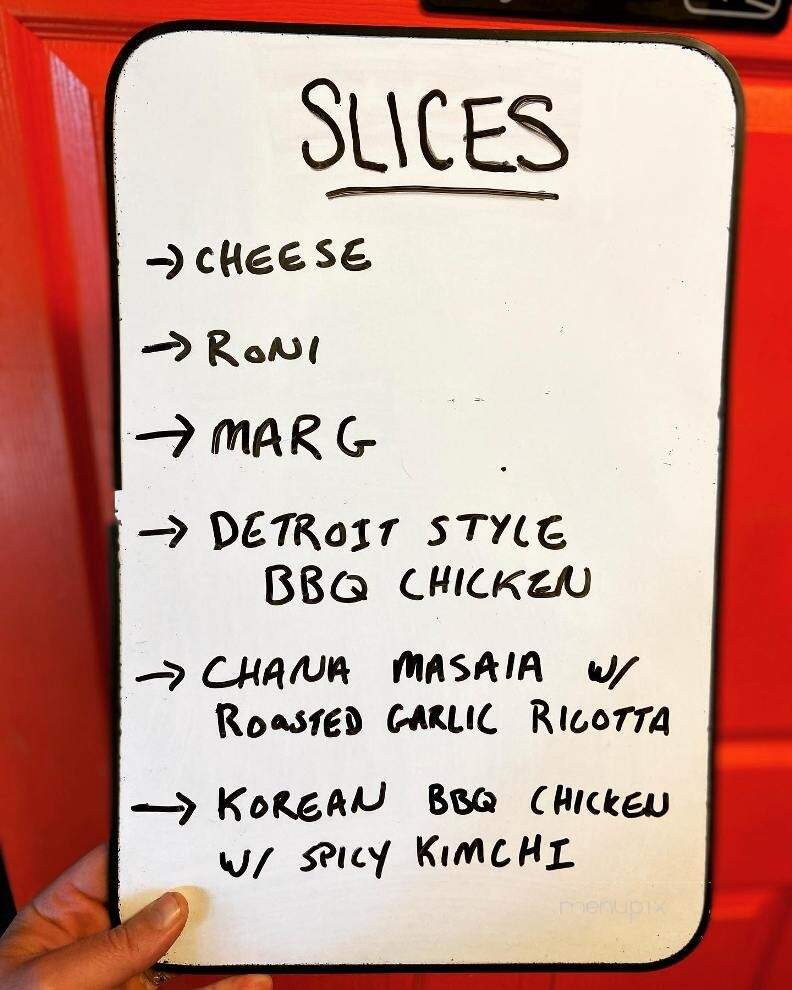 SLICES
→ CHEESE
→ RONI
→ MARG
→ DETROIT STYLE
BBQ CHICKEN
→ CHANA MASAIA W/
ROASTED GARLIC RICOTTA
→ KOREAN BBQ CHICKEN
W/ SPICY KIMCHI
menupix